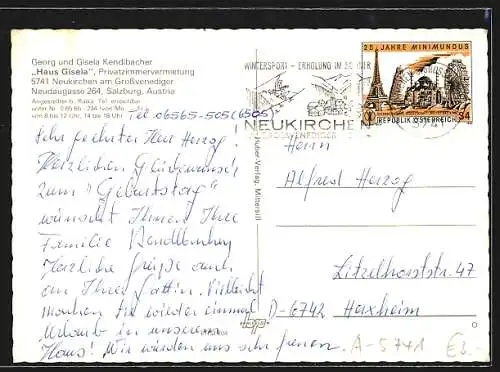 Georg und Gisela Kendlbacher
„Haus Gisela", Privatzimmervermietung
5741 Neukirchen am Großvenediger
Neudaugasse 264, Salzburg, Austria
von 8 bis 12 Uhr, 14 bis 18 Uhr
Tel. 06565-505 (6505)
Sehr geehrter Herr Herzog!
Herzlichen Glückwunsch
zum "Geburtstag"
wünscht Ihnen Ihre
Familie Kendlbacher
Herzliche Grüße auch
an Ihre Gattin. Vielleicht
machen Sie wieder einmal
Urlaub in unserem
Haus! Wir würden uns sehr freuen.
Huber-Verlag, Mittersill
WINTERSPORT - ERHOLUNG IM
NEUKIRCHEN
25 JAHRE MINIMUNDUS
REPUBLIK ÖSTERREICH
S4
Herrn
Alfred Herzog
Litzelhorststr. 47
D-6742 Herxheim
A-5741
€3.-